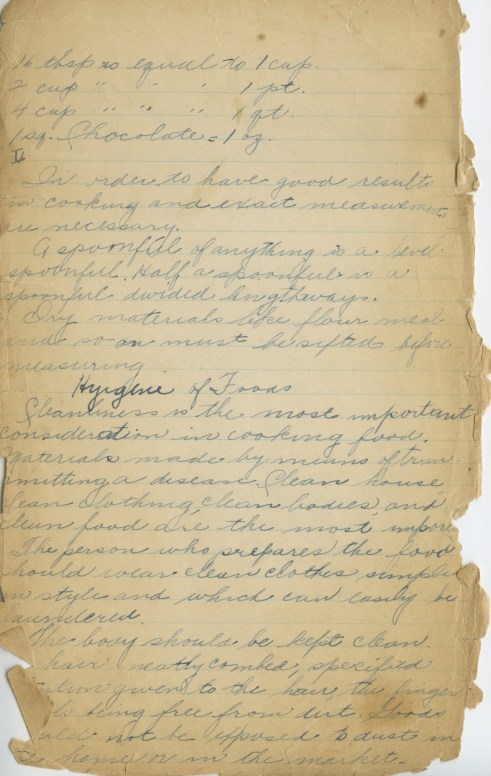 16 tbsp is equal to 1 cup.
2 cup " " " 1 pt.
4 cup " " " 1 qt.
1 sq. Chocolate = 1 oz.
II
In order to have good results
in cooking and exact measurements
are necessary.
A spoonful of anything is a level
spoonful. Half a spoonful is a
spoonful divided lengthways.
Dry materials like flour meal
and so on must be sifted before
measuring.
Hygiene of Foods
Cleanliness is the most important
consideration in cooking food.
Materials made by means of tran
mitting a disease. Clean house,
lean clothing, clean bodies, and
clean food are the most impor
The person who prepares the food
should wear clean clothes simple
in style and which can easily be
laundered.
The body should be kept clean.
hair neatly combed, specified
ention given to the hair, the finger
ls being free from dirt. Goods
uld not be exposed to dust in
e home or in the market.